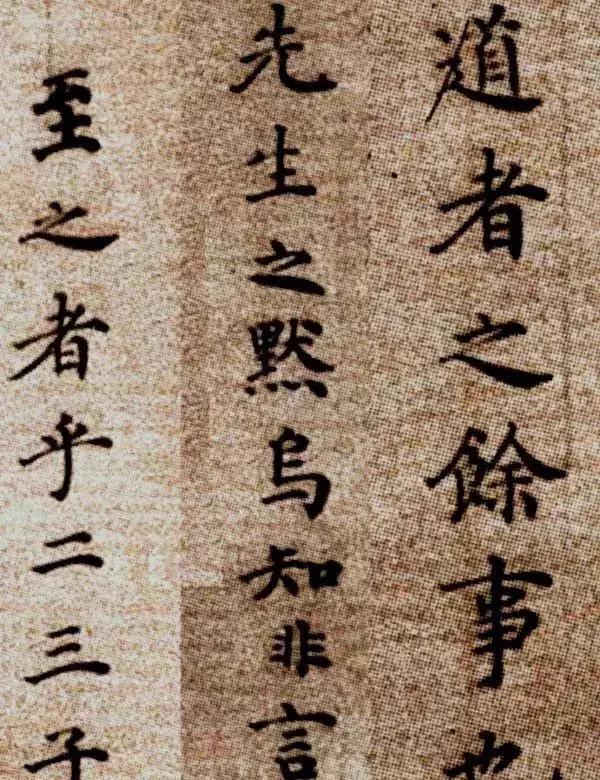 道者之餘事也
先生之默烏知非言
至之者乎二三子